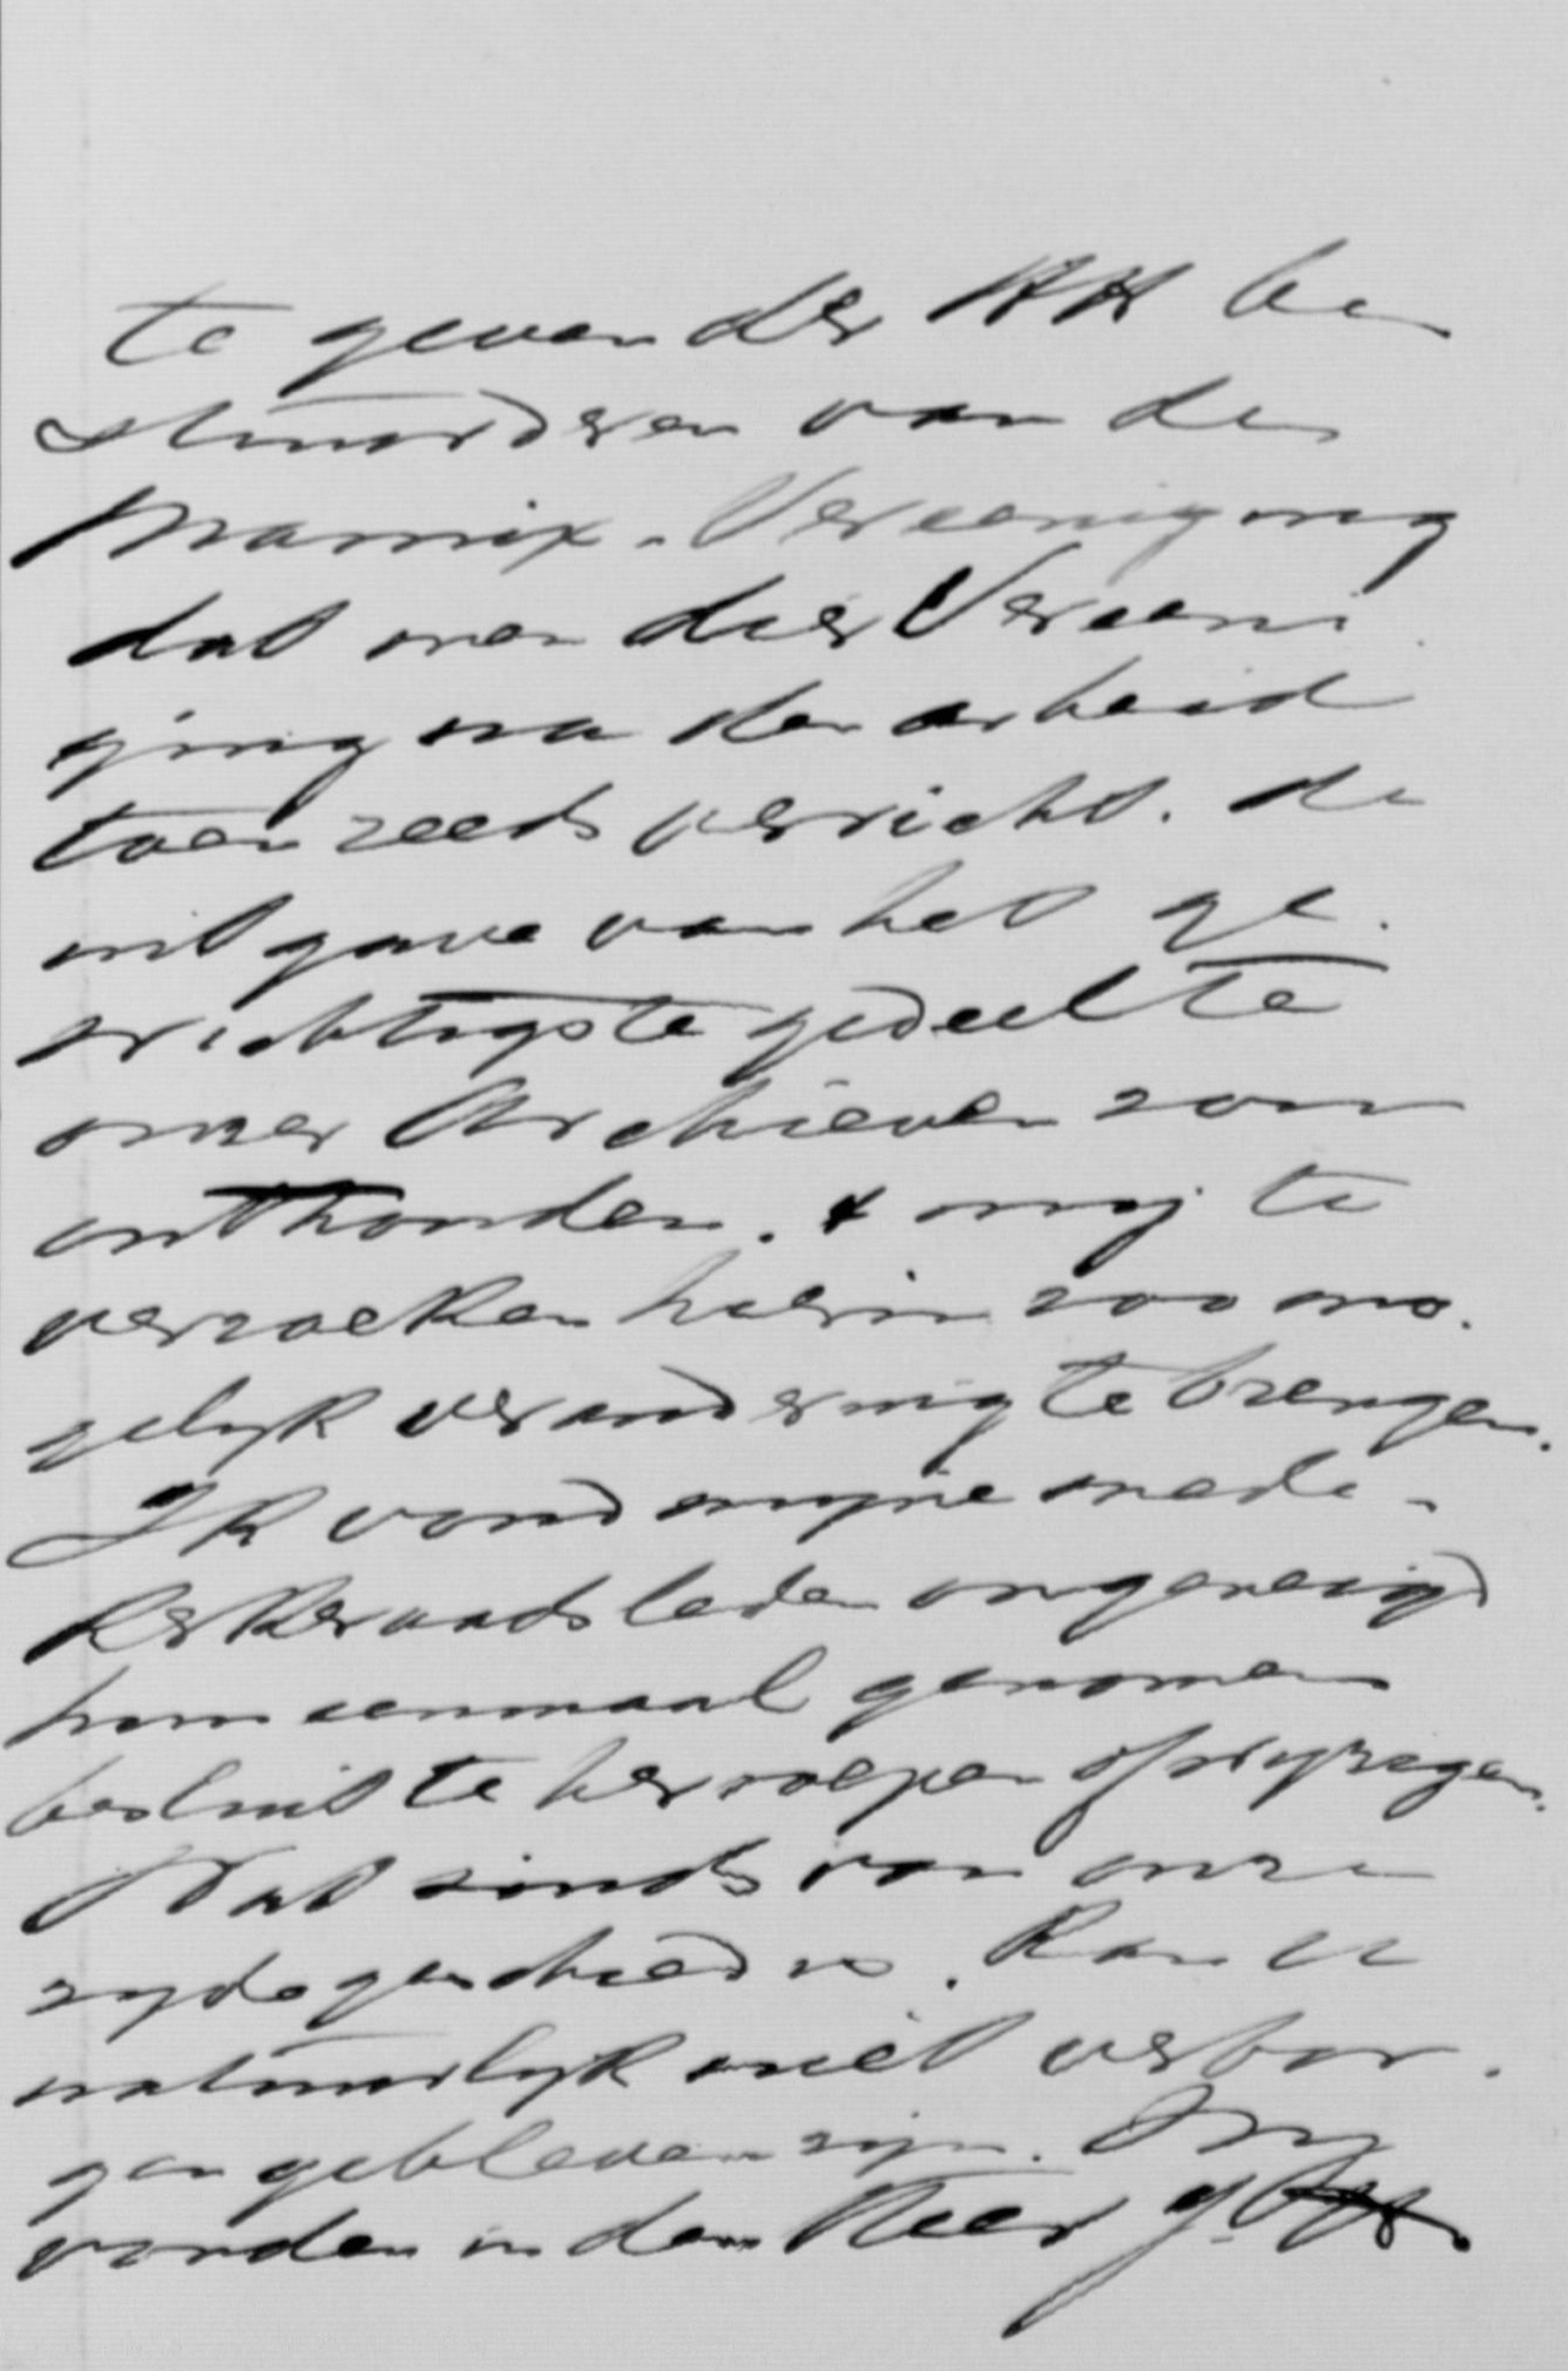 te geven der HH be
stuurderen van de
Marnix-Vereeniging
dat men dier Vereeni
ging na den arbeid
toen reeds verricht. de
uitgave van het ge.
wichtigste gedeelte
onzer Archieven zou
onthouden. & mij te
verzoeken hierin zoo mo.
gelijk verandering te brengen.
Ik vond mijne mede-
kerkeraadsleden ongeneigd
hun eenmaal genomen
besluit te herroepen of wijzigen.
Wat sinds van onze
zijde geschied is. kan U
natuurlijk niet verbor.
gen gebleven zijn. Wij
vonden in den Heer